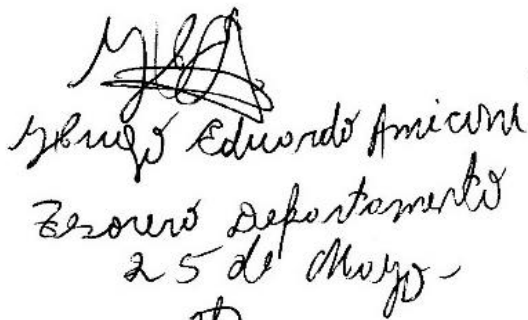 Hugo Eduardo Amiconi
Tesorero Departamento
25 de Mayo-